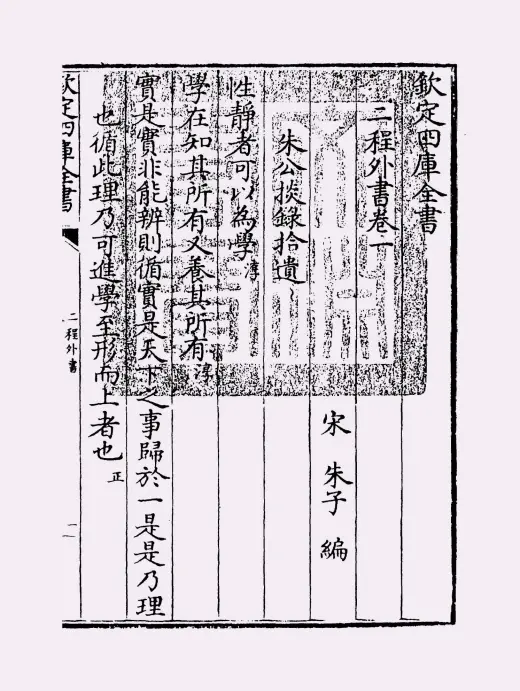 欽定四庫全書
二程外書卷一
宋 朱子 編
朱公掞錄拾遺
性靜者可以為學淳
學在知其所有又養其所有淳
實是實非能辨則循實是天下之事歸於一是是乃理
也循此理乃可進學至形而上者也正
欽定四庫全書
二程外書
一